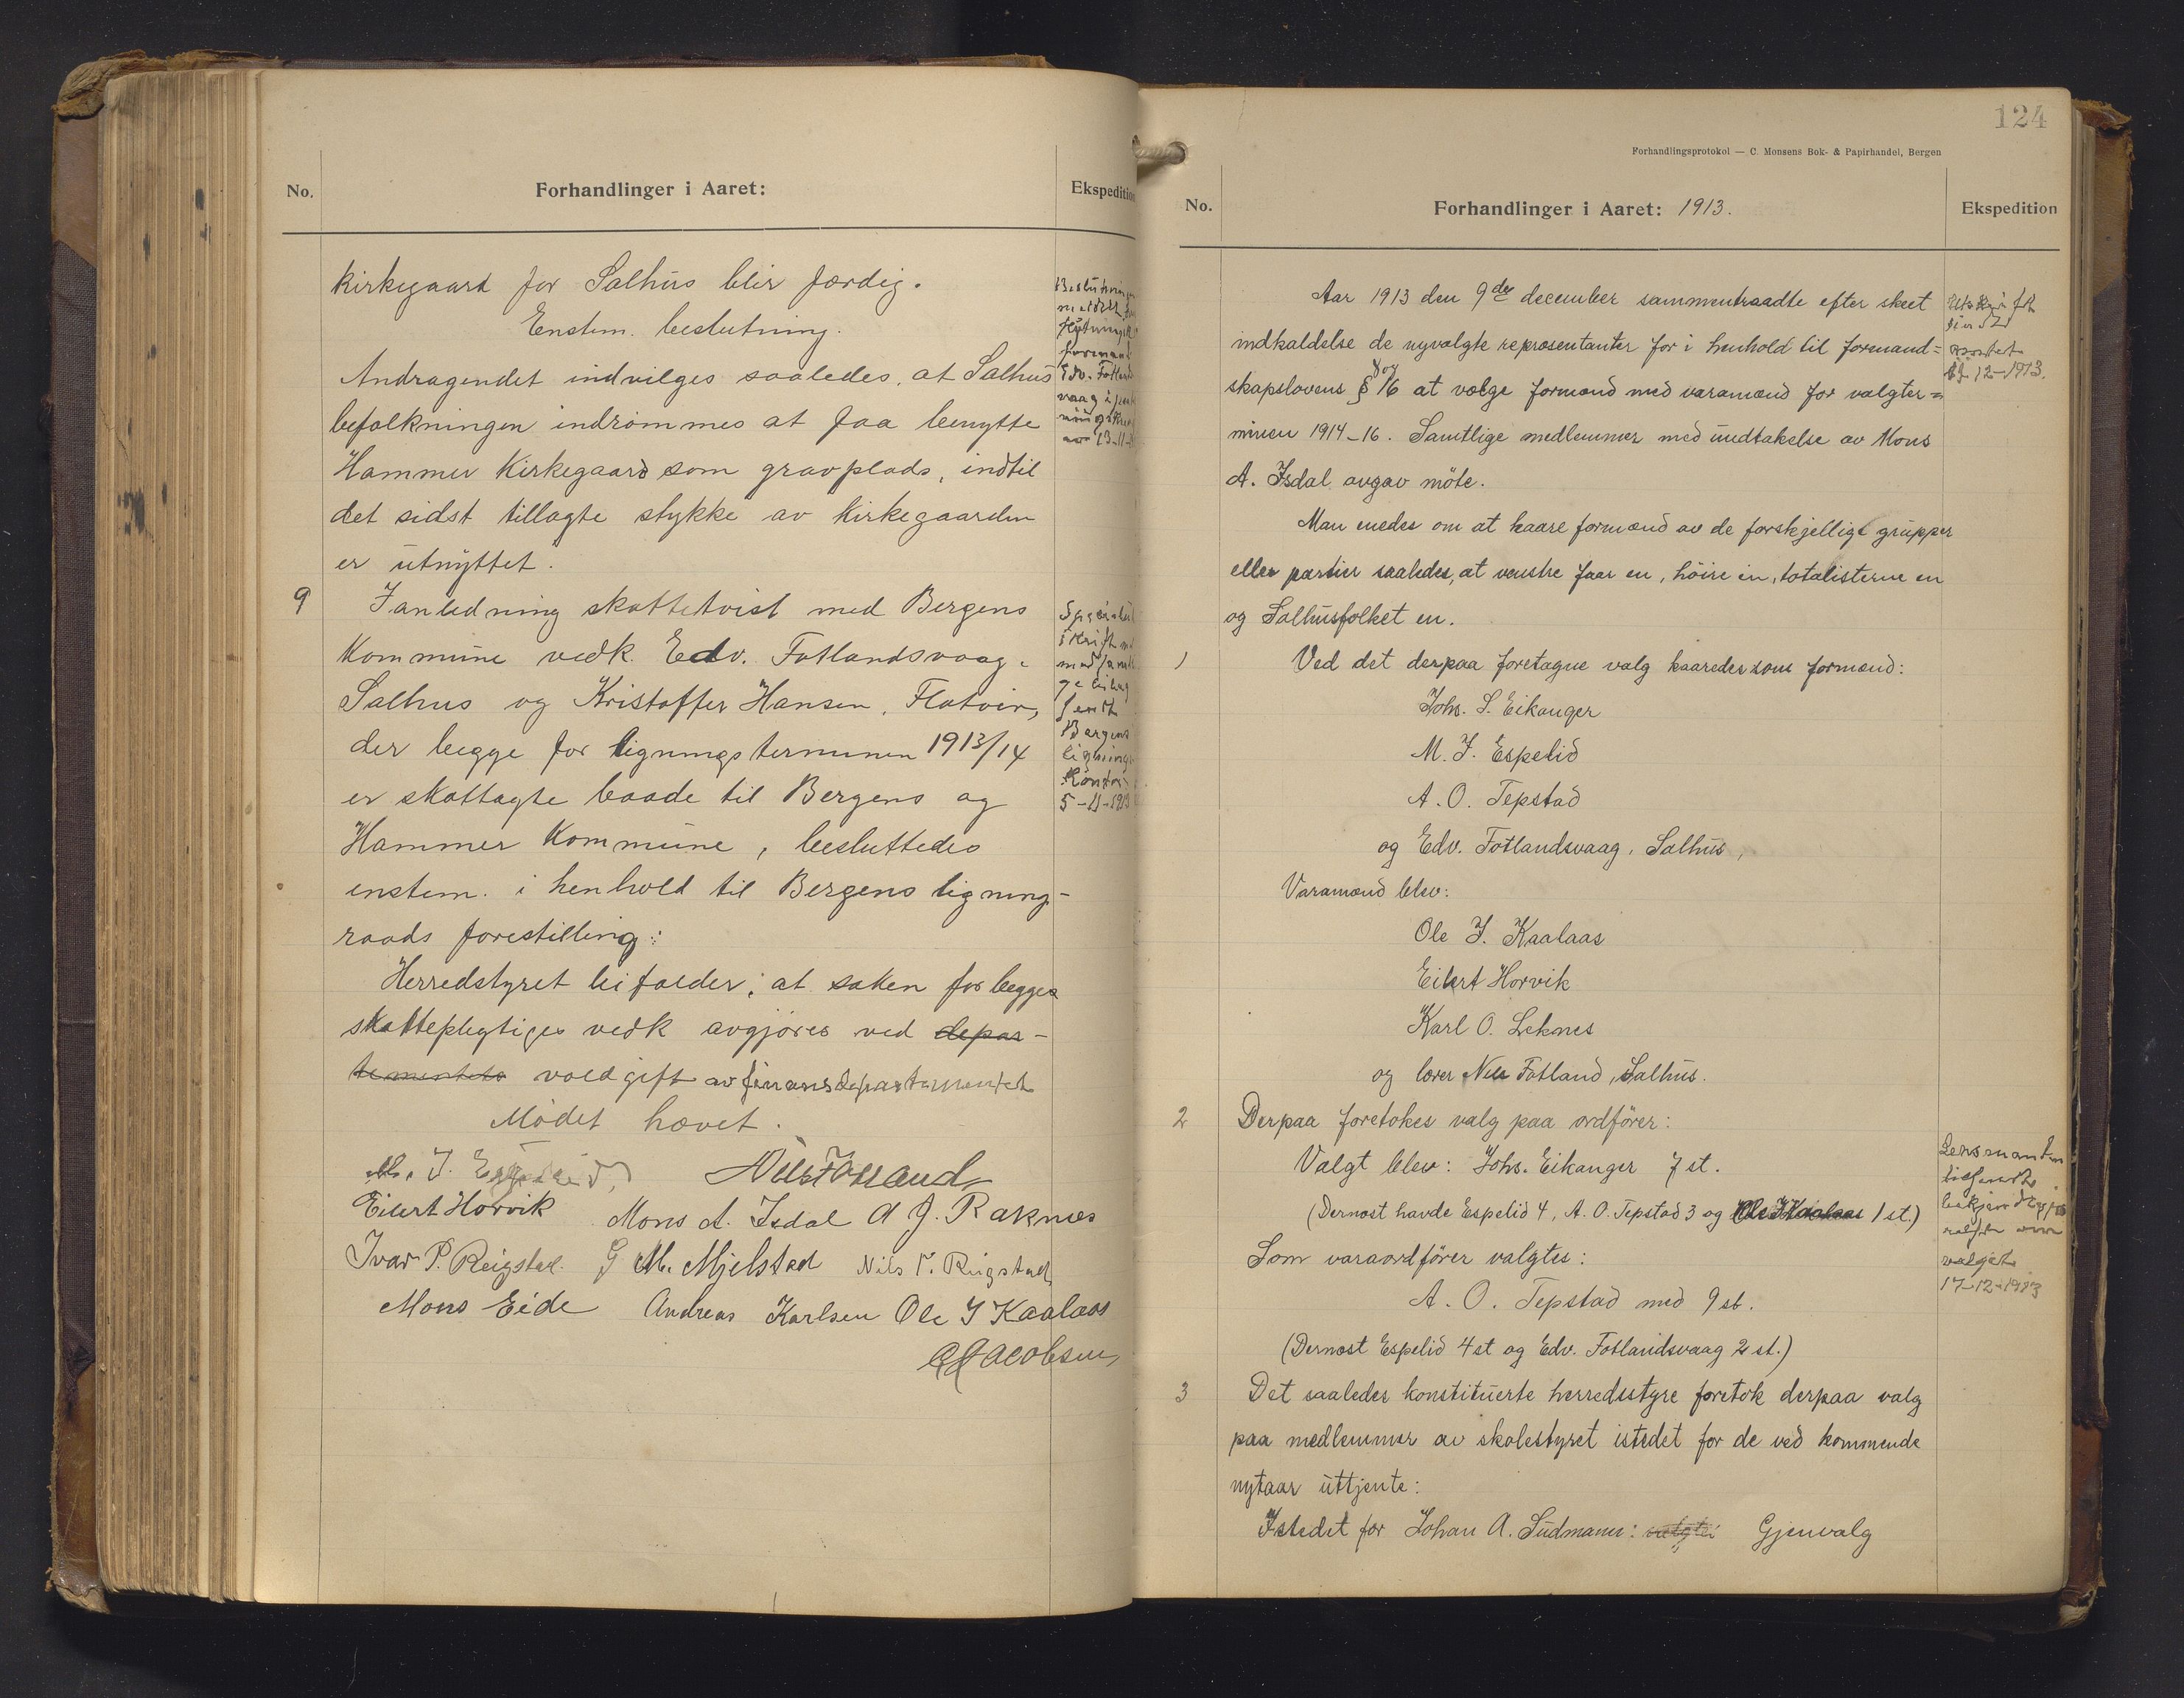 No.
Forhandlinger i Aaret:
Ekspedition
kirkegaard for Salhus blir færdig.
Enstem. beslutning.
Andragendet indvilges saaledes, at Salhus
befolkningen indrømmes at faa benytte
Hammer Kirkegaard som gravplads, indtil
det sidst tillagte stykke av kirkegaarden
er utnyttet.
9 I anledning skattetvist med Bergens
Kommune vedk. Edv. Fotlandsvaag,
Salhus og Kristoffer Hansen, Flatøir,
der begge for ligningsterminen 1913/14
er skattagte baade til Bergens og
Hammer Kommune, besluttedes
enstem. i henhold til Bergens ligning-
raads forestilling:
Herredstyret bifalder, at saken for begges
skattepligtiges vedk avgjøres ved depar-
tementets voldgift av finansdepartementet
Mødet hævet.
M. J. Espelid Nils Fotland
Eilert Horvik Mons A. Isdal A J. Raknes
Ivar P. Reigstad. G M. Mjelstad Nils P. Reigstad
Mons Eide Andreas Karlsen Ole I Kaalaas
Jacobsen
Bergens
5-11-1913
124
Forhandlingsprotokol — C. Monsens Bok- & Papirhandel, Bergen
No.
Forhandlinger i Aaret: 1913.
Ekspedition
Aar 1913 den 9de december sammentraadte efter skeet
indkaldelse de nyvalgte repræsentanter for i henhold til formand=
skapslovens § 8 og 16 at vælge formænd med varamænd for valgter=
minen 1914-16. Samtlige medlemmer med undtakelse av Mons
A. Isdal avgav møte.
Man enedes om at kaare formænd av de forskjellige grupper
eller partier saaledes, at venstre faar en, høire en, totalisterne en
og Salhusfolket en.
1 Ved det derpaa foretagne valg kaaredes som formænd:
Johs. S. Eikanger
M. J. Espelid
A. O. Tepstad
og Edv. Fotlandsvaag, Salhus,
Varamænd blev:
Ole I. Kaalaas
Eilert Horvik
Karl O. Leknes
og lærer Nils Fotland, Salhus.
2 Derpaa foretokes valg paa ordfører:
Valgt blev: Johs. Eikanger 7 st.
(Dernæst havde Espelid 4, A. O. Tepstad 3 og Ole I Kaalaas 1 st.)
Som varaordfører valgtes:
A. O. Tepstad med 9 st.
(Dernæst Espelid 4 st og Edv. Fotlandsvaag 2 st.)
3 Det saaledes konstituerte herredsstyre foretok derpaa valg
paa medlemmer av skolestyret istedet for de ved kommende
nytaar uttjente:
Istedet for Johan A. Sudmann: valgtes Gjenvalg
12-1913.
Lensmanden
tilsendt
om
valget
17-12-1913